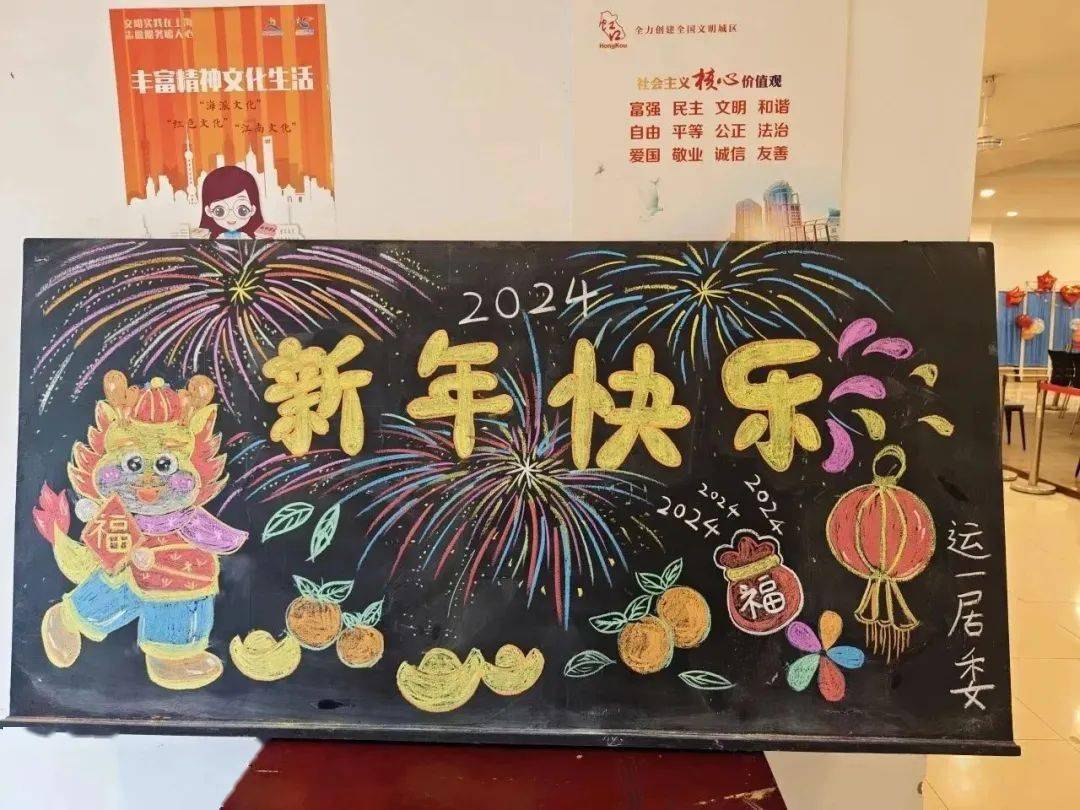 文明实践在上海
志愿服务暖人心
丰富精神文化生活
“海派文化”
“红色文化”“江南文化”
虹口
HongKou
全力创建全国文明城区
社会主义核心价值观
富强 民主 文明 和谐
自由 平等 公正 法治
爱国 敬业 诚信 友善
2024
新年快乐
2024
2024
2024
福
福
运一居委